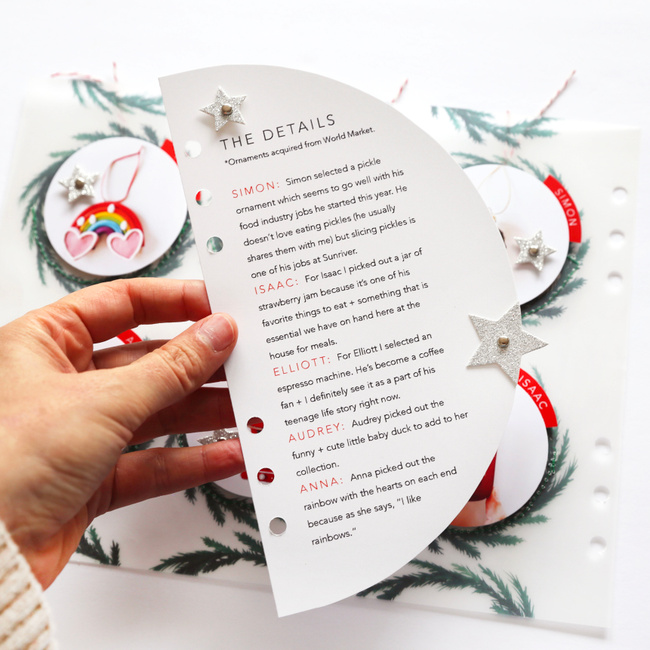 THE DETAILS
*Ornaments acquired from World Market.
SIMON: Simon selected a pickle
ornament which seems to go well with his
food industry jobs he started this year. He
doesn't love eating pickles (he usually
shares them with me) but slicing pickles is
one of his jobs at Sunriver.
ISAAC: For Isaac I picked out a jar of
strawberry jam because it's one of his
favorite things to eat + something that is
essential we have on hand here at the
house for meals.
ELLIOTT: For Elliott I selected an
espresso machine. He's become a coffee
fan + I definitely see it as a part of his
teenage life story right now.
AUDREY: Audrey picked out the
funny + cute little baby duck to add to her
collection.
ANNA: Anna picked out the
rainbow with the hearts on each end
because as she says, "I like
rainbows."
SIMON
ISAAC